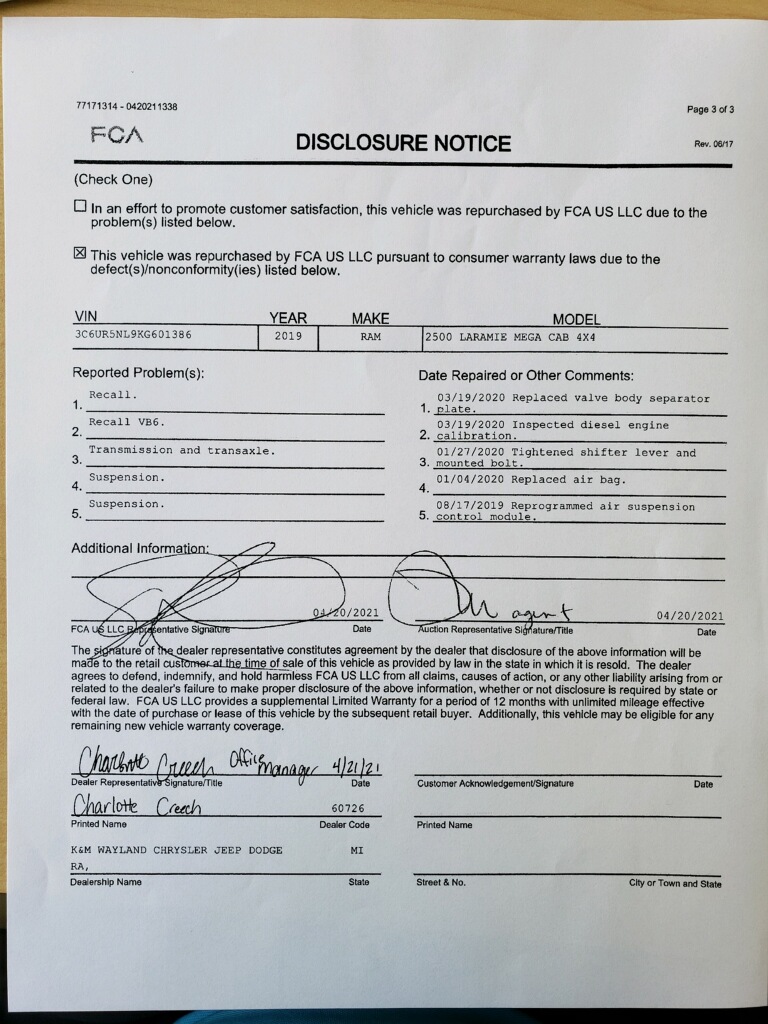 77171314 - 0420211338
Page 3 of 3
FCA
DISCLOSURE NOTICE
Rev. 06/17
(Check One)
☐ In an effort to promote customer satisfaction, this vehicle was repurchased by FCA US LLC due to the
problem(s) listed below.
☒ This vehicle was repurchased by FCA US LLC pursuant to consumer warranty laws due to the
defect(s)/nonconformity(ies) listed below.
VIN YEAR MAKE MODEL
3C6UR5NL9KG601386 2019 RAM 2500 LARAMIE MEGA CAB 4X4
Reported Problem(s):
1. Recall.
2. Recall VB6.
3. Transmission and transaxle.
4. Suspension.
5. Suspension.
Date Repaired or Other Comments:
03/19/2020 Replaced valve body separator
1. plate.
03/19/2020 Inspected diesel engine
2. calibration.
01/27/2020 Tightened shifter lever and
3. mounted bolt.
4. 01/04/2020 Replaced air bag.
08/17/2019 Reprogrammed air suspension
5. control module.
Additional Information:
04/20/2021
agent 04/20/2021
FCA US LLC Representative Signature Date
Auction Representative Signature/Title Date
The signature of the dealer representative constitutes agreement by the dealer that disclosure of the above information will be
made to the retail customer at the time of sale of this vehicle as provided by law in the state in which it is resold. The dealer
agrees to defend, indemnify, and hold harmless FCA US LLC from all claims, causes of action, or any other liability arising from or
related to the dealer's failure to make proper disclosure of the above information, whether or not disclosure is required by state or
federal law. FCA US LLC provides a supplemental Limited Warranty for a period of 12 months with unlimited mileage effective
with the date of purchase or lease of this vehicle by the subsequent retail buyer. Additionally, this vehicle may be eligible for any
remaining new vehicle warranty coverage.
Charlotte Creech Office Manager 4/21/21
Dealer Representative Signature/Title Date
Customer Acknowledgement/Signature Date
Charlotte Creech 60726
Printed Name Dealer Code
Printed Name
K&M WAYLAND CHRYSLER JEEP DODGE MI
RA,
Dealership Name State
Street & No. City or Town and State